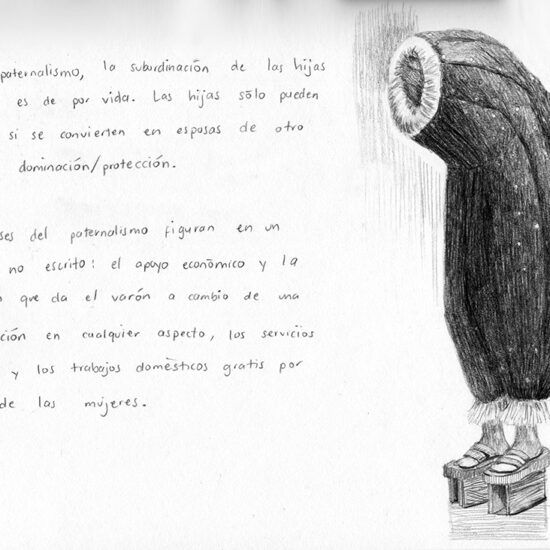 paternalismo, la subordinación de las hijas
es de por vida. Las hijas sólo pueden
si se convierten en esposas de otro
dominación/protección.
del paternalismo figuran en un
no escrito: el apoyo económico y la
que da el varón a cambio de una
en cualquier aspecto, los servicios
y los trabajos domésticos gratis por
de las mujeres.